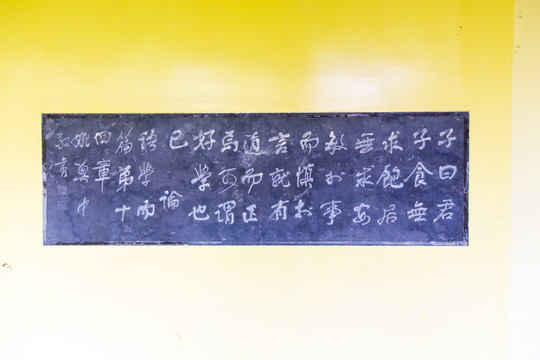 子曰君
子食無
求飽居
無求安
敏於事
而慎於
言就有
道而正
焉可謂
好學也
已 論
語學而
篇第十
四章
姚奠中
敬書